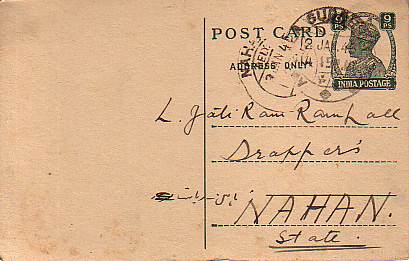 POST CARD
ADDRESS ONLY
9 PS
9 PS
INDIA POSTAGE
L. Jati Ram Ram Lall
Drapper's
NAHAN.
State.